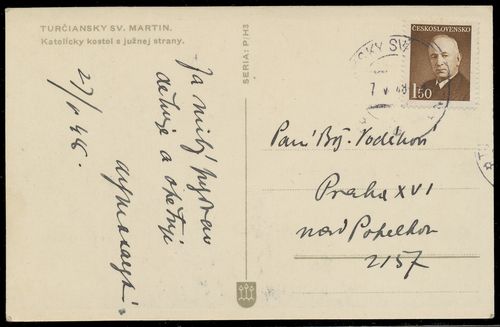 TURČIANSKY SV. MARTIN.
Katolícky kostol s južnej strany.
SERIA: P/H3
Za milý pozdrav
děkuje a opětuje
ČESKOSLOVENSKO
1.50
CKY SV.
7 V 48
Paní Bož. Vodičková
Praha XVI
nad Popelkou
2157